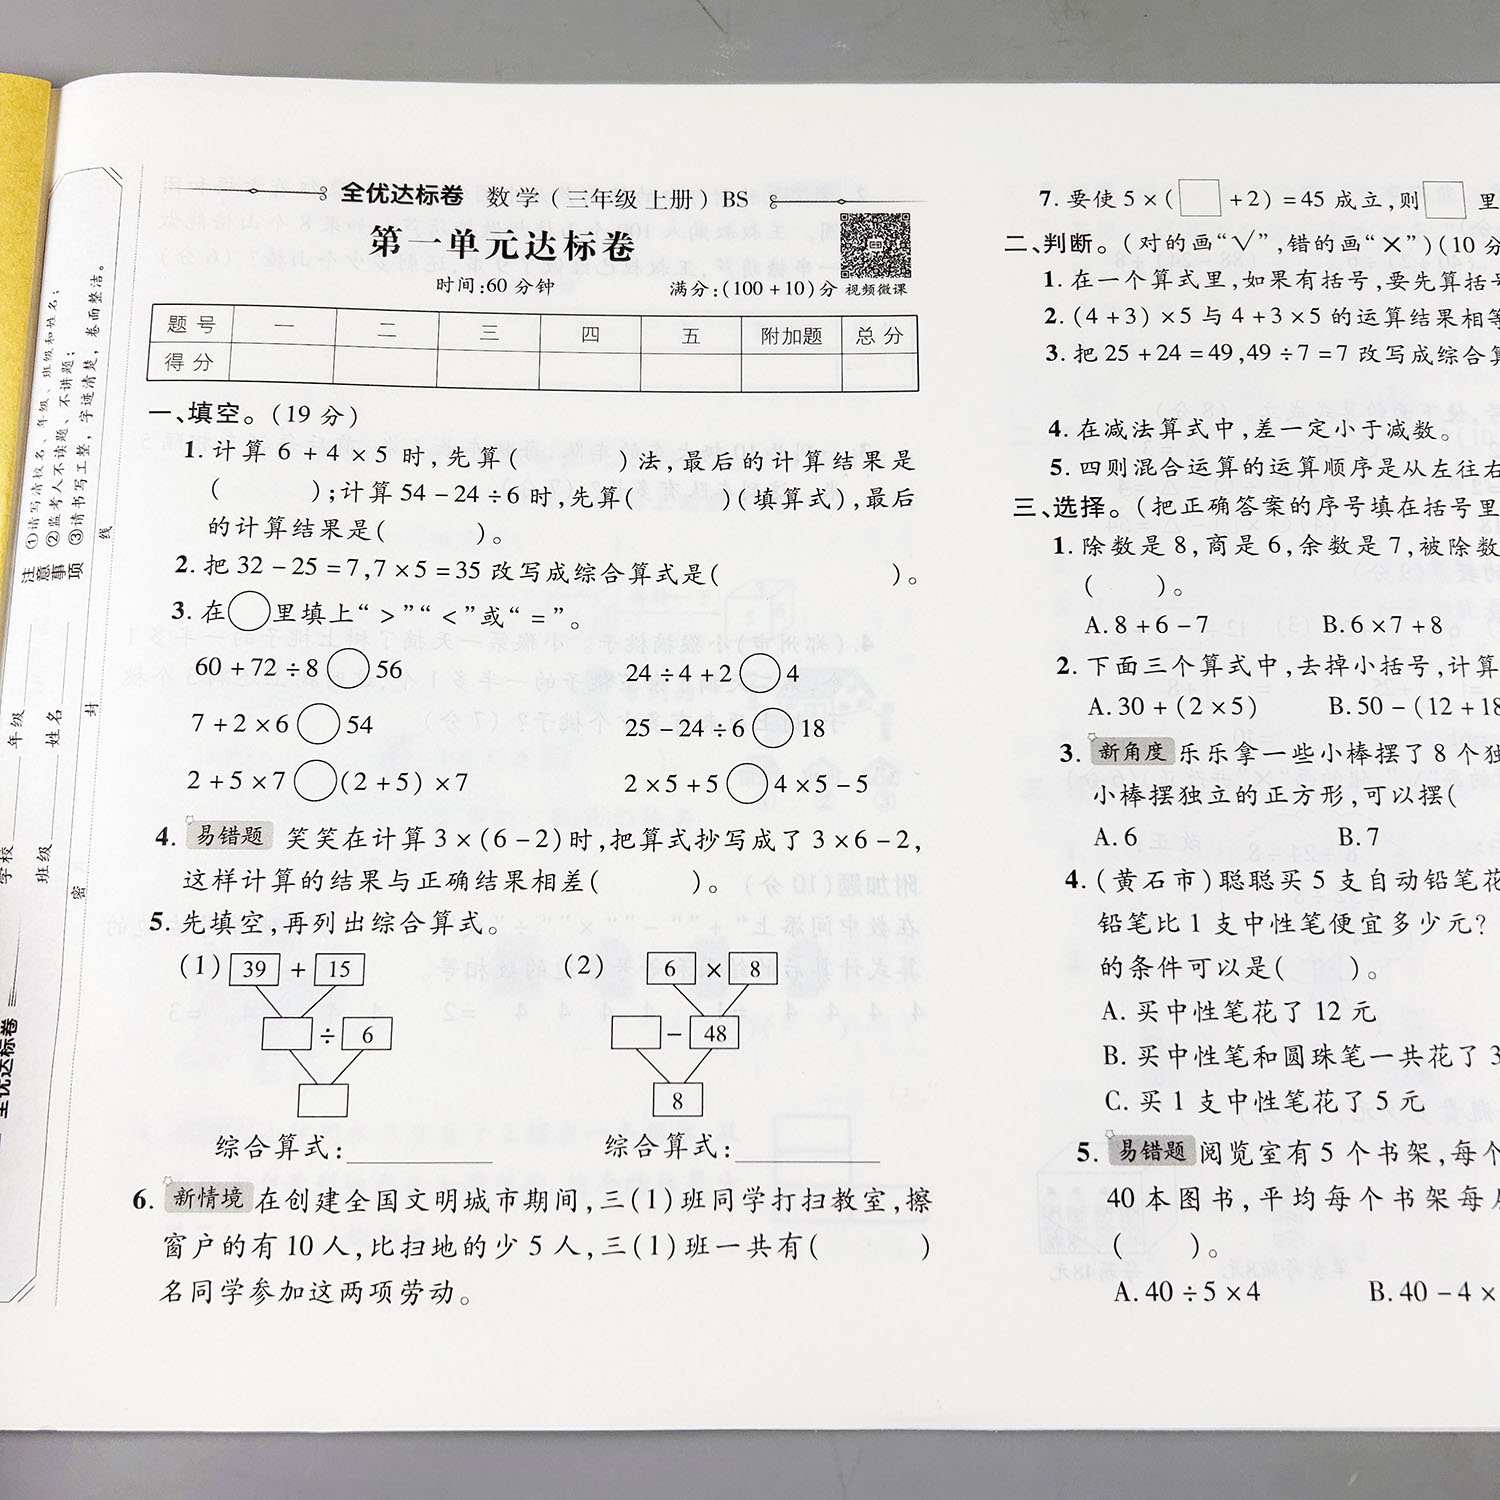 全优达标卷 数学(三年级 上册) BS
第一单元达标卷
时间:60 分钟 满分:(100+10)分 视频微课
题号 一 二 三 四 五 附加题 总分
得分
一、填空。(19 分)
1. 计算 6+4×5 时,先算( )法,最后的计算结果是
( );计算 54-24÷6 时,先算( )(填算式),最后
的计算结果是( )。
2. 把 32-25=7,7×5=35 改写成综合算式是( )。
3. 在○里填上“>”“<”或“=”。
60+72÷8○56 24÷4+2○4
7+2×6○54 25-24÷6○18
2+5×7○(2+5)×7 2×5+5○4×5-5
4. 易错题 笑笑在计算 3×(6-2)时,把算式抄写成了 3×6-2,
这样计算的结果与正确结果相差( )。
5. 先填空,再列出综合算式。
(1) 39 + 15 (2) 6 × 8
÷ 6 - 48
8
综合算式: 综合算式:
6. 新情境 在创建全国文明城市期间,三(1)班同学打扫教室,擦
窗户的有 10 人,比扫地的少 5 人,三(1)班一共有( )
名同学参加这两项劳动。
7. 要使 5×(□+2)=45 成立,则□里
二、判断。(对的画“√”,错的画“×”)(10 分
1. 在一个算式里,如果有括号,要先算括号
2. (4+3)×5 与 4+3×5 的运算结果相等
3. 把 25+24=49,49÷7=7 改写成综合算
4. 在减法算式中,差一定小于减数。
5. 四则混合运算的运算顺序是从左往右
三、选择。(把正确答案的序号填在括号里
1. 除数是 8,商是 6,余数是 7,被除数
( )。
A. 8+6-7 B. 6×7+8
2. 下面三个算式中,去掉小括号,计算
A. 30+(2×5) B. 50-(12+18
3. 新角度 乐乐拿一些小棒摆了 8 个独
小棒摆独立的正方形,可以摆(
A. 6 B. 7
4. (黄石市)聪聪买 5 支自动铅笔花
铅笔比 1 支中性笔便宜多少元?
的条件可以是( )。
A. 买中性笔花了 12 元
B. 买中性笔和圆珠笔一共花了 3
C. 买 1 支中性笔花了 5 元
5. 易错题 阅览室有 5 个书架,每个
40 本图书,平均每个书架每
( )。
A. 40÷5×4 B. 40-4×
注意事项
①请写清校名、年级、班级和姓名;
②监考人不读题、不讲题;
③请书写工整,字迹清楚,卷面整洁。
学校 年级
班级 姓名
密 封 线
全优达标卷